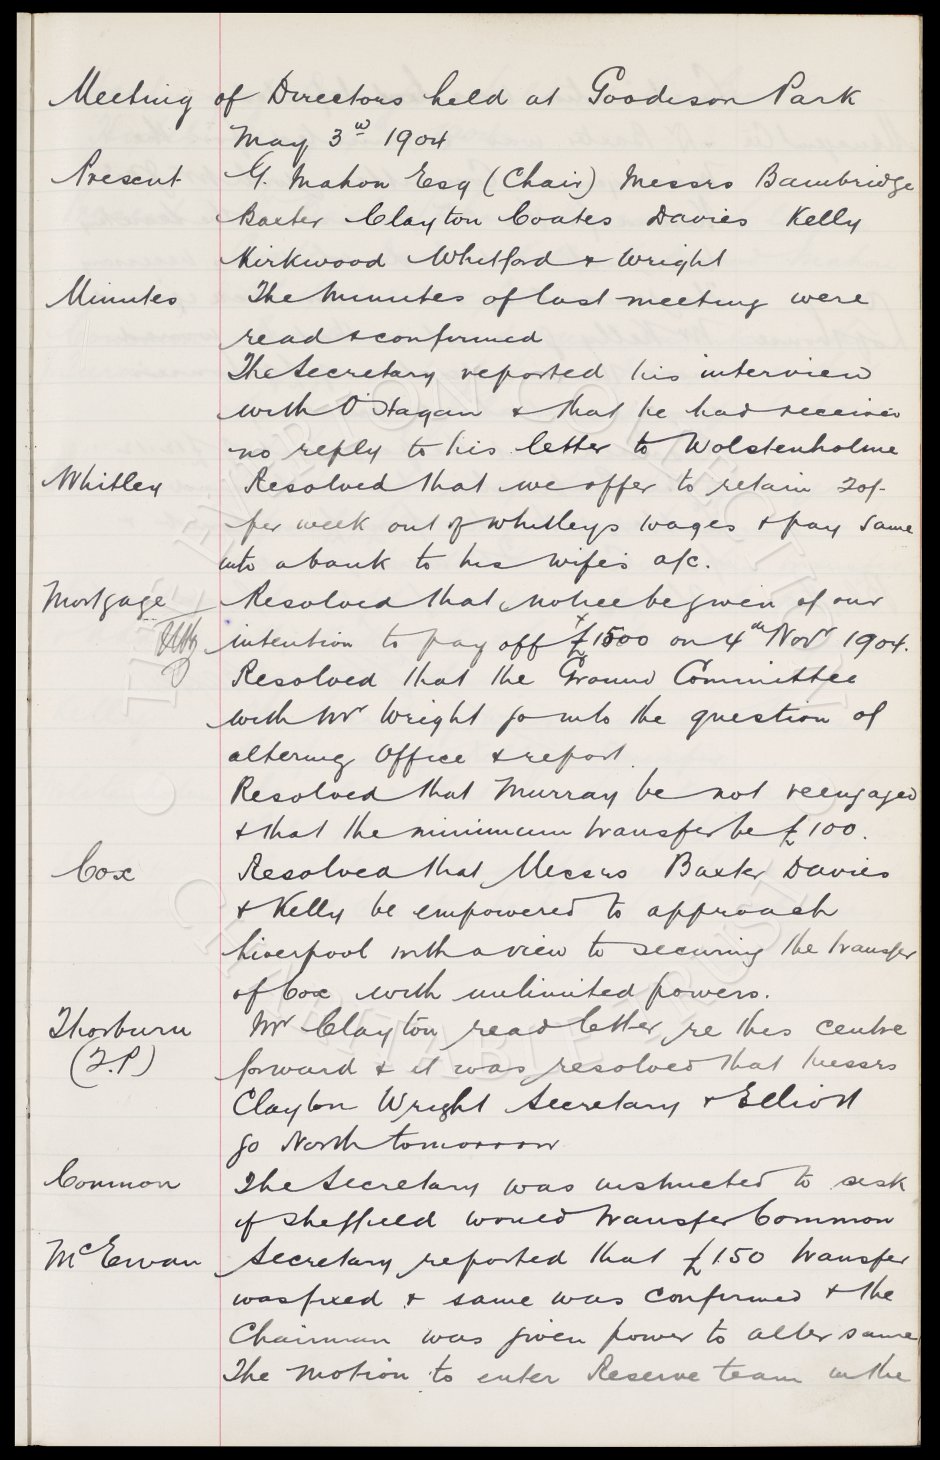 Meeting of Directors held at Goodison Park
May 3rd 1904
Present G. Mahon Esq (Chair) Messrs Bainbridge
Baxter Clayton Coates Davies Kelly
Kirkwood Whitford & Wright
Minutes The Minutes of last meeting were
read & confirmed
The Secretary reported his interview
with O'Hagan & that he had received
no reply to his letter to Wolstenholme
Whitley Resolved that we offer to retain 20/-
per week out of Whitleys wages & pay same
into a bank to his wife's a/c.
Mortgage Resolved that notice be given of our
intention to pay off £1500 on 4th Novr 1904.
Resolved that the Ground Committee
with Mr Wright go into the question of
altering Office & report.
Resolved that Murray be not reengaged
& that the minimum transfer be £100.
Cox Resolved that Messrs Baxter Davies
& Kelly be empowered to approach
Liverpool with a view to securing the transfer
of Cox with unlimited powers.
Thorburn Mr Clayton read letter re this centre
(F.P) forward & it was resolved that Messrs
Clayton Wright Secretary & Elliott
go North tomorrow
Common The Secretary was instructed to ask
if Sheffield would transfer Common
McEwan Secretary reported that £150 transfer
was fixed & same was confirmed & the
Chairman was given power to alter same
The Motion to enter Reserve team in the
THE EVERTON COLLECTION
CHARITABLE TRUST